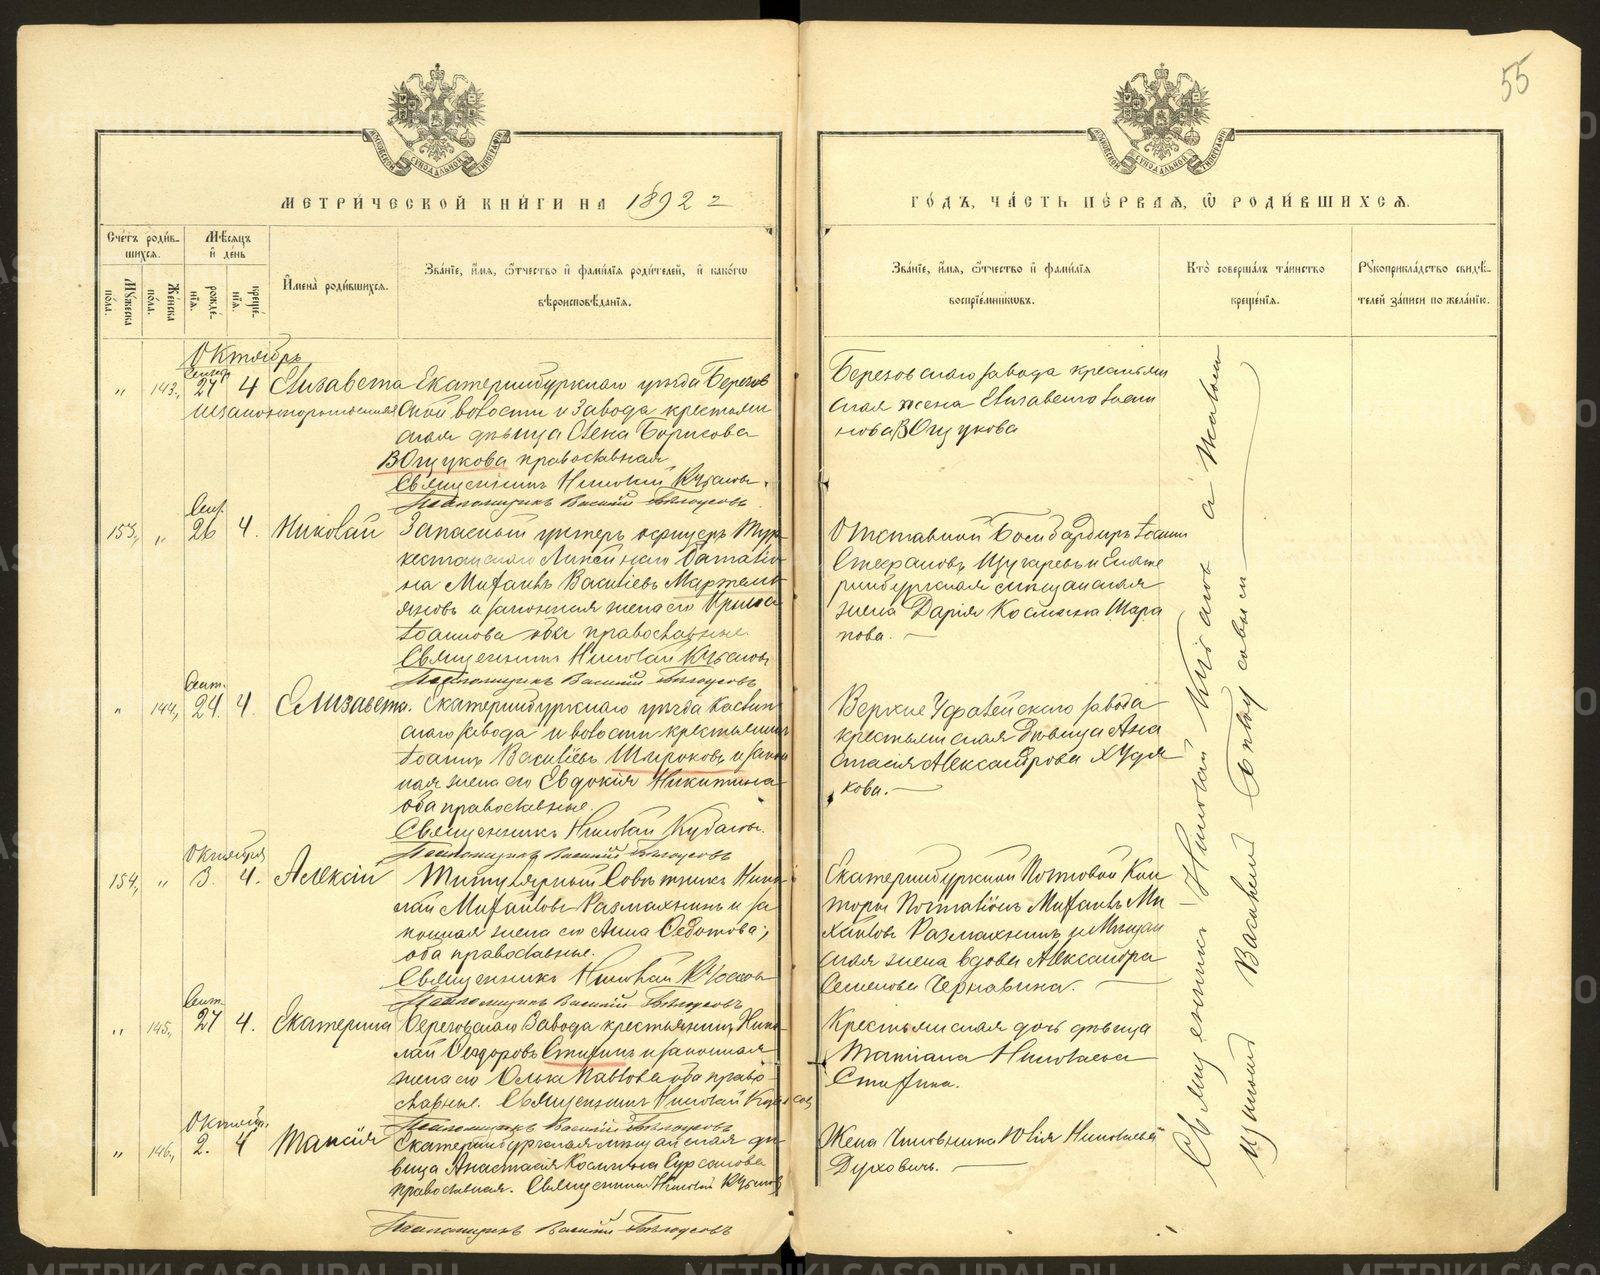 55
МЕТРИ́ЧЕСКОЙ КНИ́ГИ НА 1892 г
ГО́ДЪ, ЧА́СТЬ ПЕ́РВАЯ, Ѿ РОДИ́ВШИХСЯ.
Сче́тъ роди́в-
шихся.
Мѣсяцъ
и де́нь
Му́жеска по́ла.
Же́нска по́ла.
рожде́нїя.
креще́нїя.
Имена̀ роди́вшихся.
Зва́нїе, и́мя, ѻ́тчество и фами́лїя роди́телей, и како́гѡ
вѣроисповѣ́данїя.
Зва́нїе, и́мя, ѻ́тчество и фами́лїя
воспрїе́мникѡвъ.
Кто̀ соверша́лъ та́инство
креще́нїя.
Рꙋкоприкла́дство свидѣ́-
телей за́писи по жела́нїю.
Октябрь
Сентяб.
" 143, 27 4 Елизавета
незаконнорожденная
Екатеринбургскаго уѣзда Березов
ской волости и завода крестьян
ская дѣвица Елена Борисова
Вощукова православная
Священникъ Николай
Псаломщикъ Василій Бѣлоусовъ
Березовскаго завода крестьян
ская жена Елизавета Іоан
нова Вощукова
Сент.
153, " 26 4. Николай
Запасный унтеръ офицеръ Тур
кестанскаго Линейнаго баталіо
на Михаилъ Василіевъ Мартемь
яновъ и законная жена его
Іоаннова оба православные.
Священникъ Николай
Псаломщикъ Василій Бѣлоусовъ
Отставной Бомбардиръ Іоаннъ
Стефановъ и Екате
ринбургская мѣщанская
жена Дарія Козмина Шара
пова.
Сент.
" 144, 24. 4. Елизавета.
Екатеринбургскаго уѣзда Каслин
скаго завода и волости крестьянинъ
Іоаннъ Василіевъ Широковъ и закон
ная жена его Евдокія Никитина
оба православные.
Священникъ Николай
Псаломщикъ Василій Бѣлоусовъ
Верхне Уфалейскаго завода
крестьянская дѣвица Ана
стасія Александрова Худя
кова.
Октября
154, " 3. 4. Алексій
Титулярный Совѣтникъ Нико
лай Михайловъ Размахнинъ и за
конная жена его Анна Федотова;
оба православные.
Священникъ Николай
Псаломщикъ Василій Бѣлоусовъ
Екатеринбургской Почтовой Кон
торы Почталіонъ Михаилъ Ми
хайловъ Размахнинъ и Мѣщан
ская жена вдова Александра
Семенова Чернавина.
Сент.
" 145, 27 4. Екатерина
Березовскаго Завода крестьянинъ Нико
лай Феодоровъ Стихинъ и законная
жена его Ольга Павлова оба право
славные. Священникъ Николай
Псаломщикъ Василій Бѣлоусовъ
Крестьянская дочь дѣвица
Татіана Николаева
Стихина.
Октябр.
" 146, 2. 4 Таисія
Екатеринбургская мѣщанская дѣ
вица Анастасія Козмина
православная. Священникъ Николай
Псаломщикъ Василій Бѣлоусовъ
Жена Чиновника Юлія Николаева
Духовичъ.
Священникъ Николай съ Псалом
щикомъ Василіемъ Бѣлоусовымъ